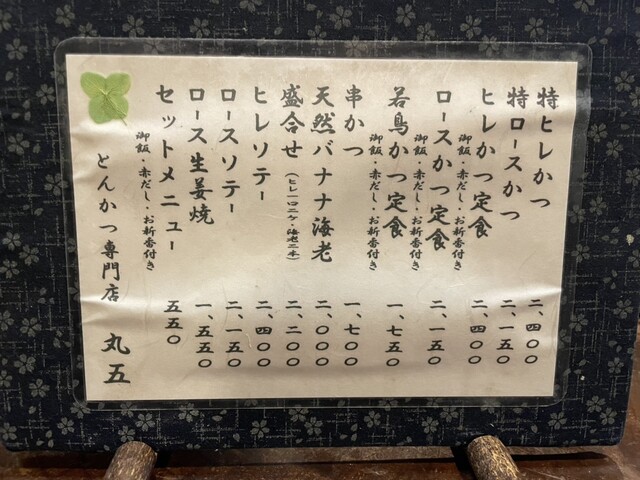 特ヒレかつ 二、四〇〇
特ロースかつ 二、一五〇
ヒレかつ定食 二、四〇〇
御飯・赤だし・お新香付き
ロースかつ定食 二、一五〇
御飯・赤だし・お新香付き
若鳥かつ定食 一、七五〇
御飯・赤だし・お新香付き
串かつ 一、七〇〇
天然バナナ海老 二、〇〇〇
盛合せ（ヒレ一口二ケ/海老二本） 二、二〇〇
ヒレソテー 二、四〇〇
ロースソテー 二、一五〇
ロース生姜焼 一、五五〇
セットメニュー 五五〇
御飯・赤だし・お新香付き
とんかつ専門店 丸五